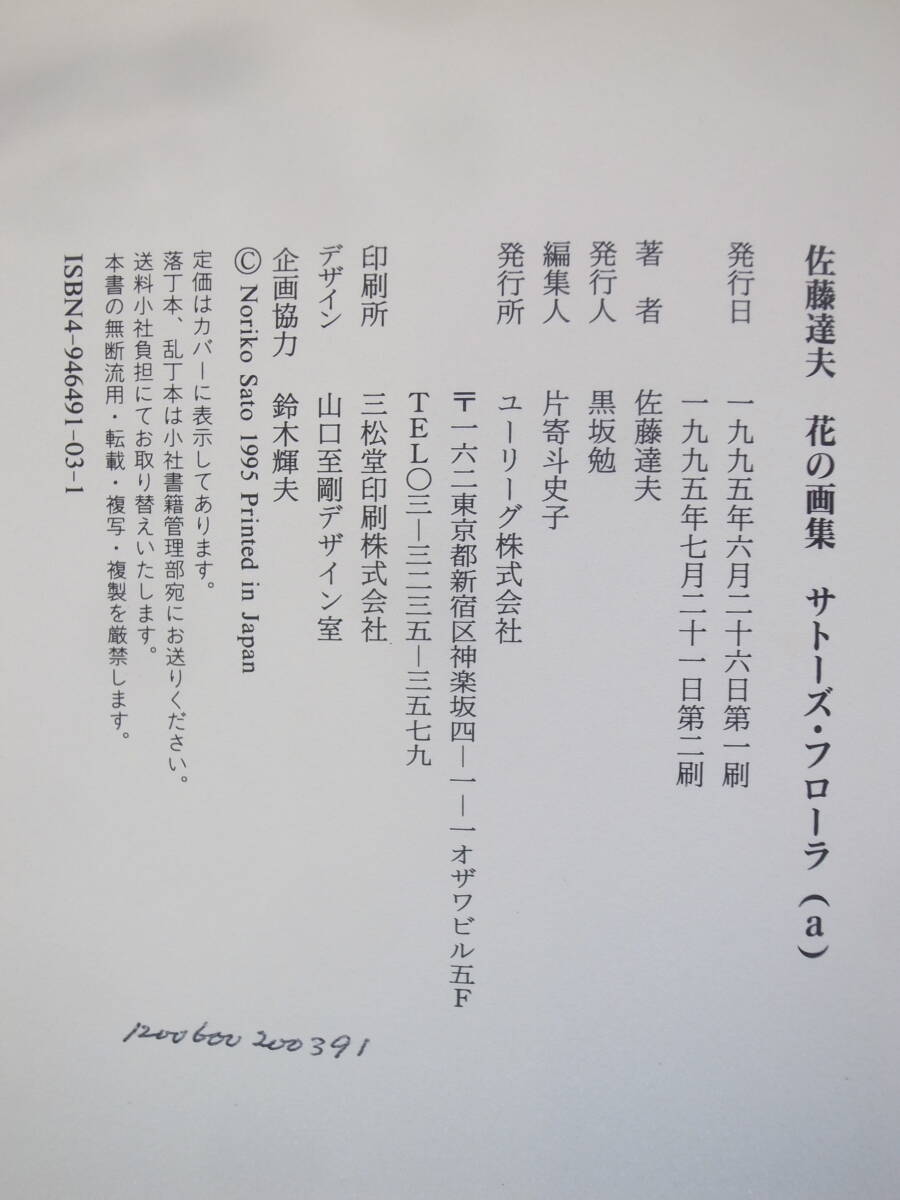 佐藤達夫　花の画集　サトーズ・フローラ（a）
発行日　一九九五年六月二十六日第一刷
一九九五年七月二十一日第二刷
著　者　佐藤達夫
発行人　黒坂勉
編集人　片寄斗史子
発行所　ユーリーグ株式会社
〒一六二東京都新宿区神楽坂四―一―一オザワビル五F
TEL〇三―三二三五―三五七九
印刷所　三松堂印刷株式会社
デザイン　山口至剛デザイン室
企画協力　鈴木輝夫
© Noriko Sato 1995 Printed in Japan
定価はカバーに表示してあります。
落丁本、乱丁本は小社書籍管理部宛にお送りください。
送料小社負担にてお取り替えいたします。
本書の無断流用・転載・複写・複製を厳禁します。
ISBN4-946491-03-1
1200600200391